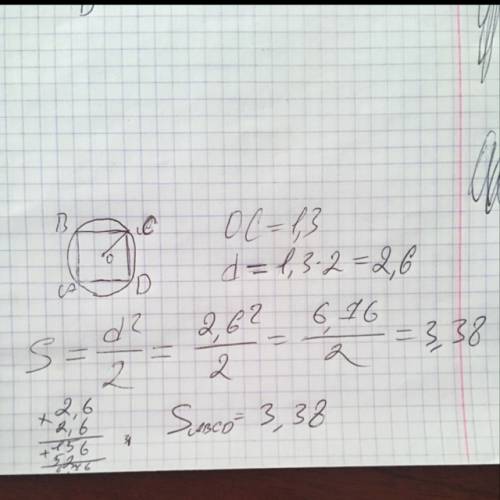 B C
O
A D
OC = 1,3
d = 1,3 · 2 = 2,6
S = d²/2 = 2,6²/2 = 6,76/2 = 3,38
× 2,6
2,6
+ 156
52
676
S_ABCD = 3,38